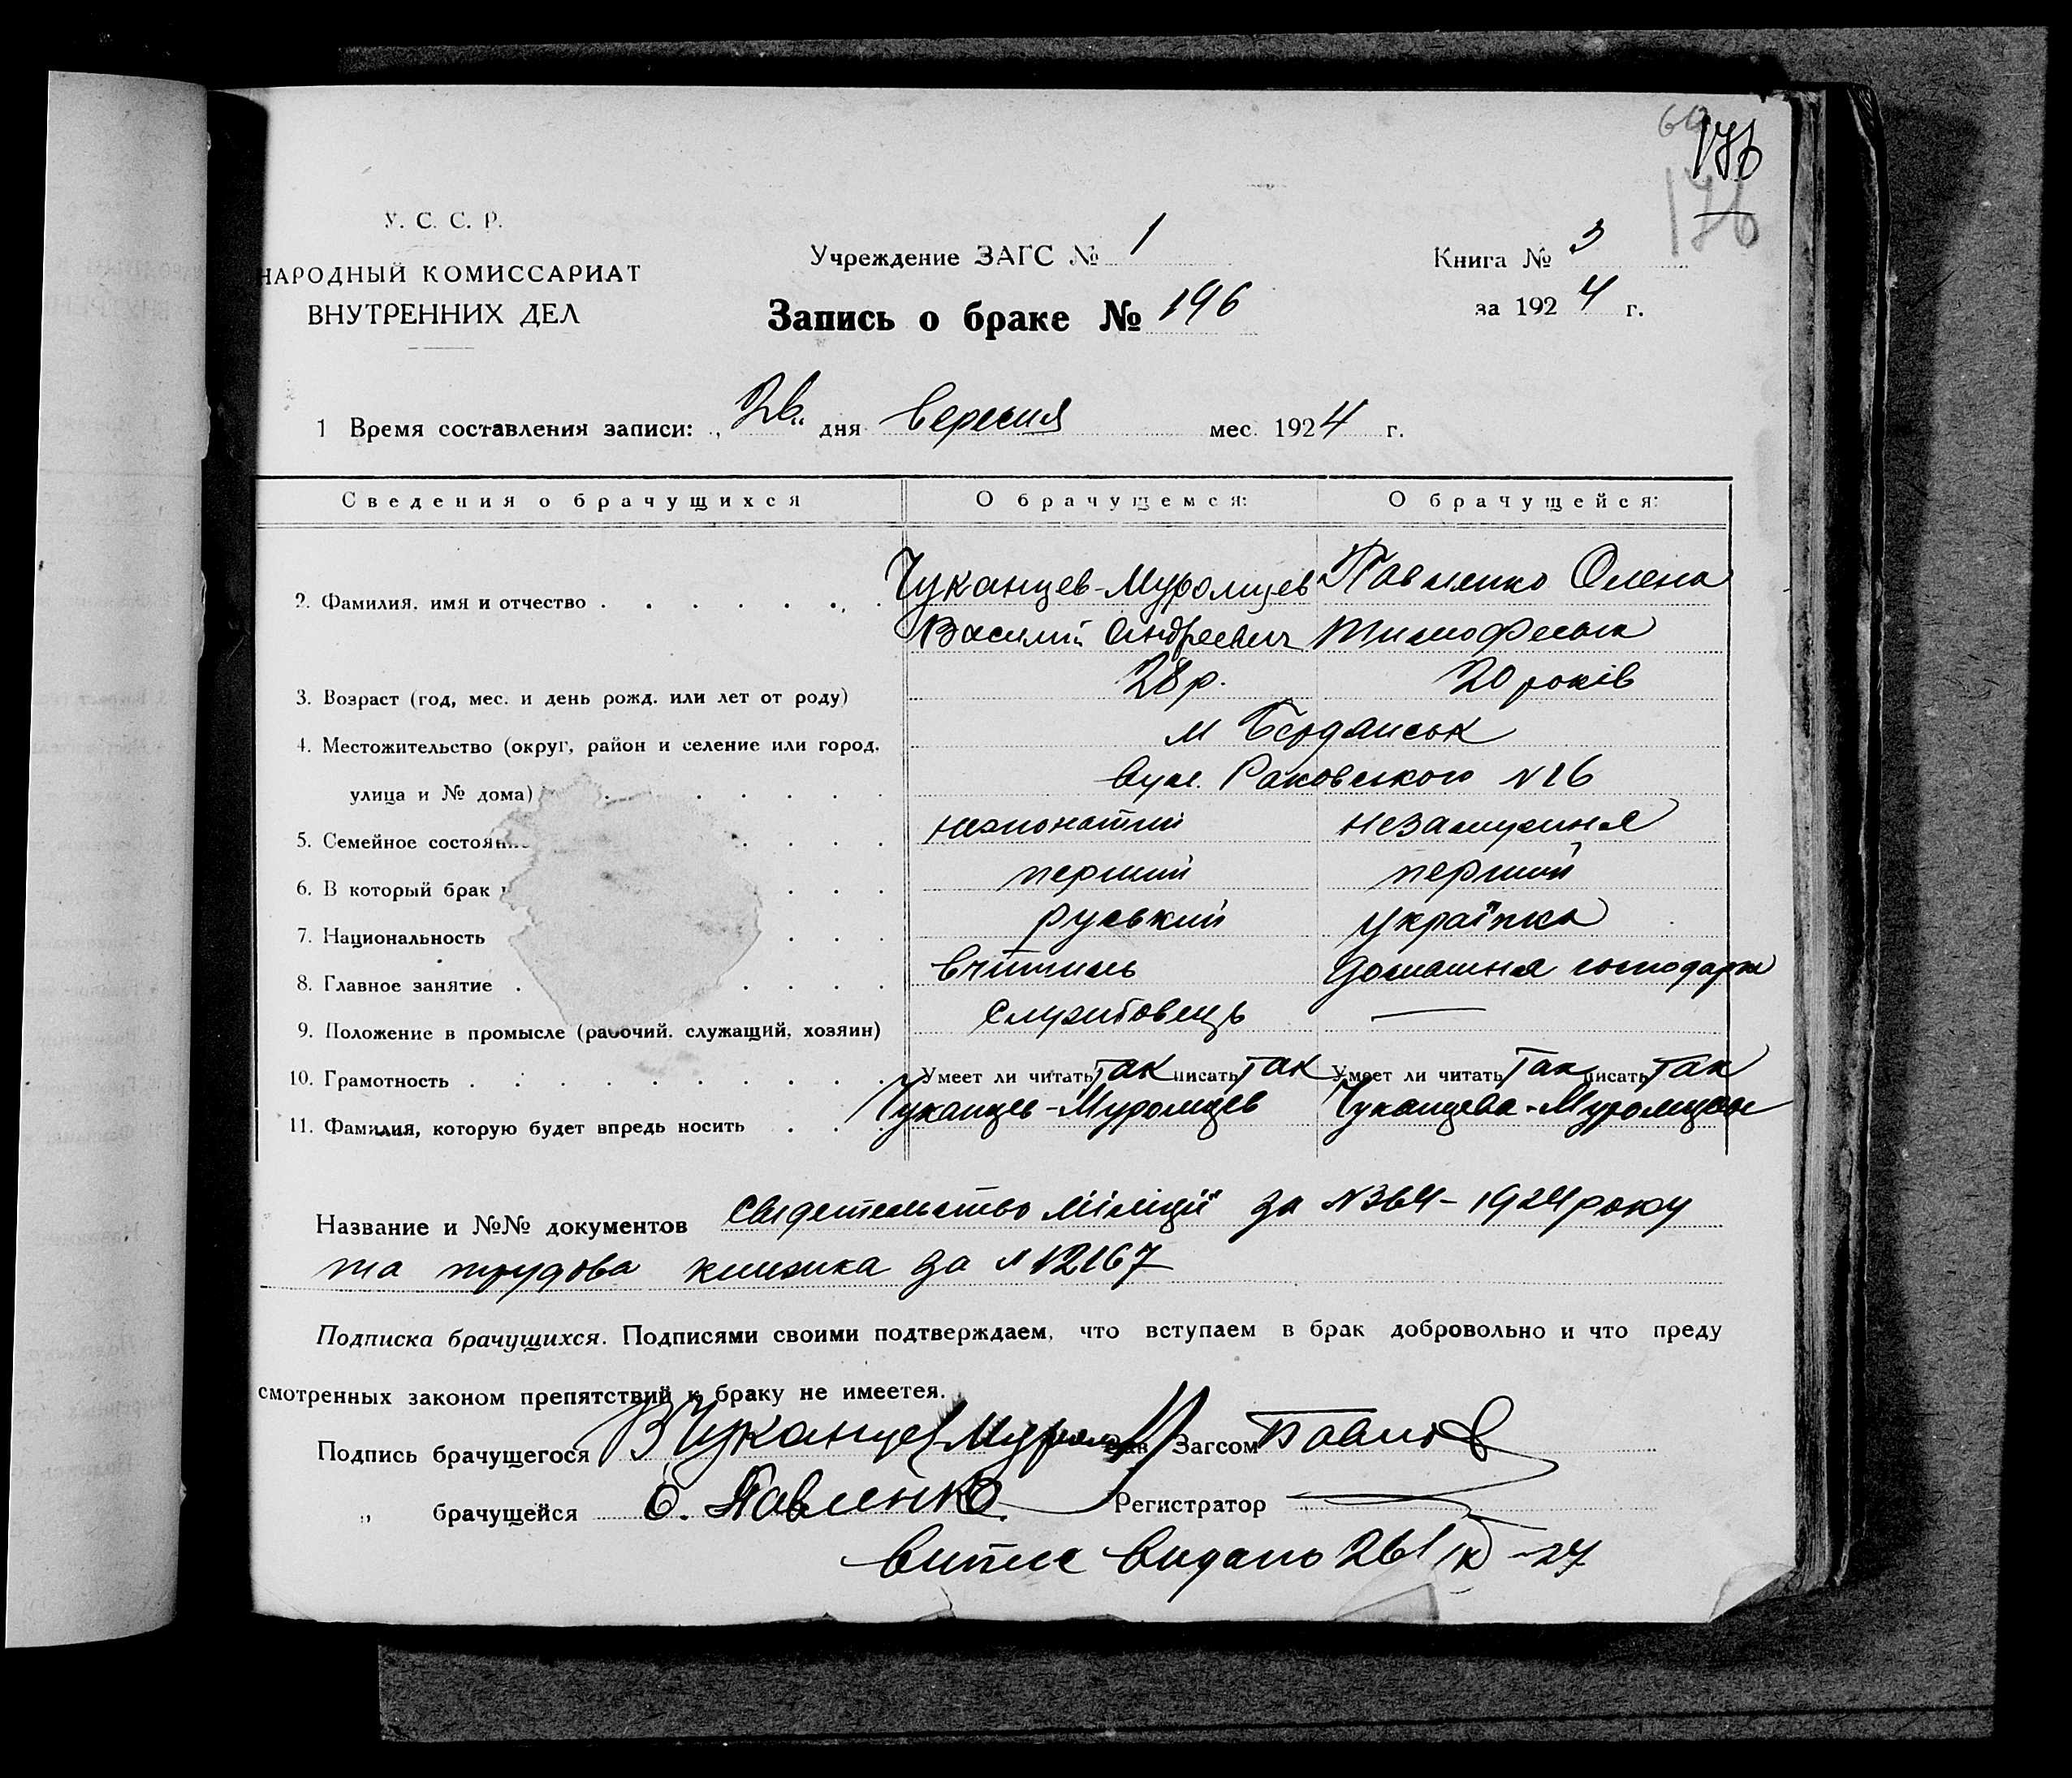 176
176
У. С. С. Р.
НАРОДНЫЙ КОМИССАРИАТ
ВНУТРЕННИХ ДЕЛ
Учреждение ЗАГС № 1
Запись о браке № 196
Книга № 3
за 1924 г.
1 Время составления записи: „26" дня вересня мес. 1924 г.
Сведения о брачущихся О брачущемся: О брачущейся:
2. Фамилия, имя и отчество Чуканцев-Муромцев Павленко Олена
Василий Андреевич Тимофеевна
3. Возраст (год, мес. и день рожд. или лет от роду) 28 р. 20 років
4. Местожительство (округ, район и селение или город, м Бердянськ
улица и № дома) вул. Раковського № 16
5. Семейное состояние нежонатий незамужня
6. В который брак перший перший
7. Национальность руський українка
8. Главное занятие вчитель домашня господарк
9. Положение в промысле (рабочий, служащий, хозяин) службовець —
10. Грамотность Умеет ли читать так писать так Умеет ли читать так писать так
11. Фамилия, которую будет впредь носить Чуканцев-Муромцев Чуканцева-Муромцева
Название и №№ документов свидетельство міліції за № 364 - 1924 року
та трудова книжка за № 12167
Подписка брачущихся. Подписями своими подтверждаем, что вступаем в брак добровольно и что преду
смотренных законом препятствий к браку не имеетея.
Подпись брачущегося В Чуканцев Муромцев Зав Загсом
„ брачущейся О. Павленко Регистратор
витяг видано 26/IX-24